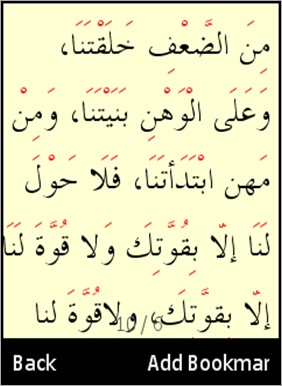 مِنَ الضَّعْفِ خَلَقْتَنَا،
وَعَلَى الْوَهْنِ بَنَيْتَنَا، وَمِنْ
مَهن ابْتَدَأتَنَا، فَلَا حَوْلَ
لَنَا إلّا بِقُوَّتِكَ وَلا قُوَّةَ لَنَا
إلّا بقوتك، ولاقُوَّةَ لنا
Back Add Bookmar